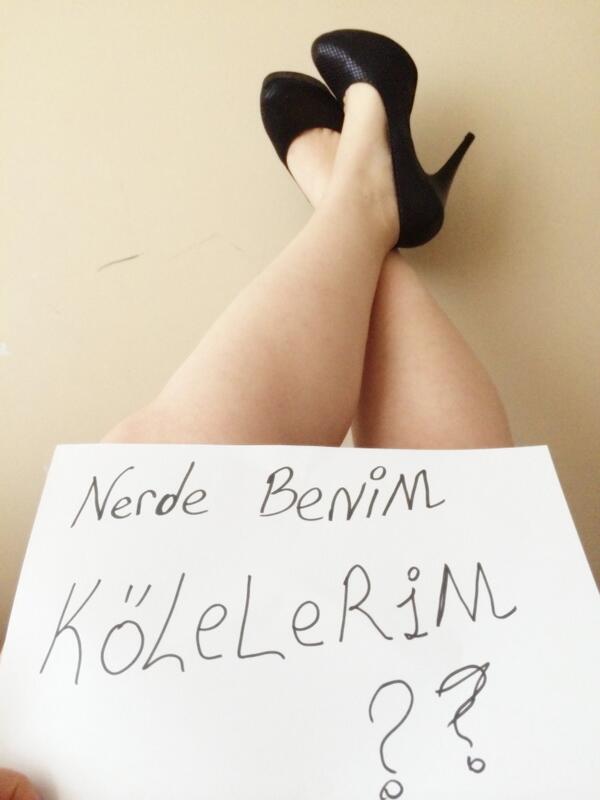 Nerde BeNiM
KöLeLeRiM
??